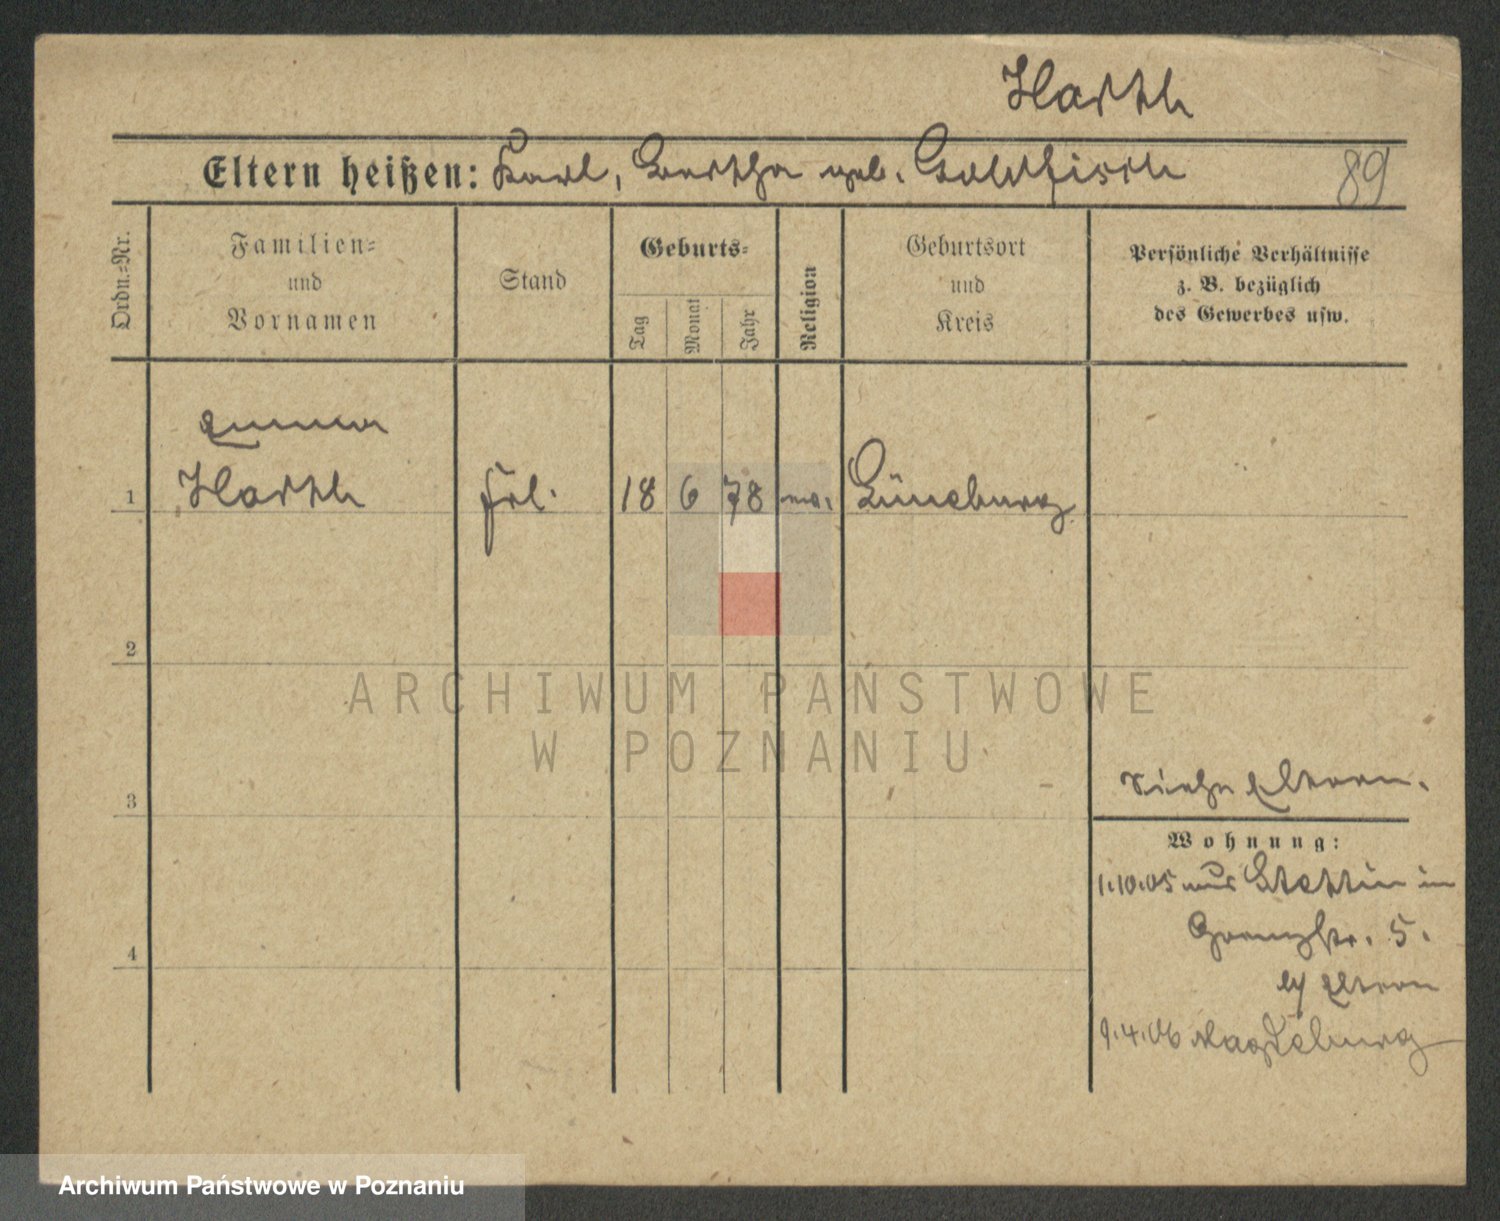 Harth
Eltern heißen: Karl, Bertha geb. Goldfisch
89
Ordn.-Nr.
Familien-
und
Vornamen
Stand
Geburts-
Tag
Monat
Jahr
Religion
Geburtsort
und
Kreis
Persönliche Verhältnisse
z. B. bezüglich
des Gewerbes usw.
Emma
1 Harth Frl. 18 6 78 ev. Lüneburg
2
ARCHIWUM PAŃSTWOWE
W POZNANIU
Siehe Eltern.
3
Wohnung:
1.10.05 aus Stettin in
Grenzstr. 5.
4
b/ Eltern
9.4.06 Magdeburg
Archiwum Państwowe w Poznaniu